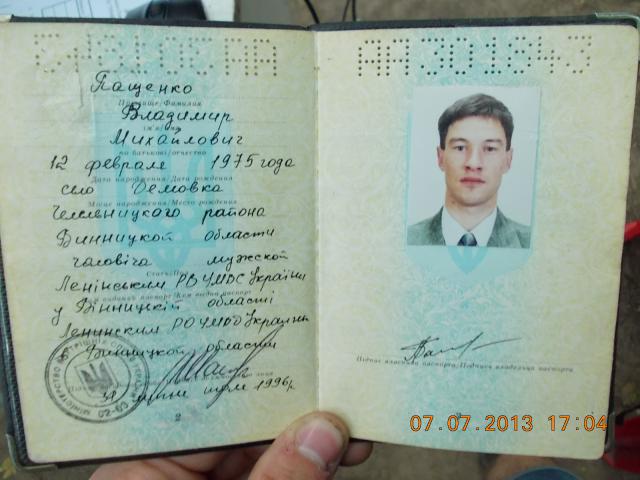 Пащенко
Прізвище/Фамилия
Владимир
Михайлович
по батькові/отчество
12 февраля 1975 года
Дата народження/Дата рождения
село Демовка
Місце народження/Место рождения
района
Винницкой области
чоловіча мужской
Ленінським РВ УМВС України
у Вінницькій області
Ленинским РО УМВД Украины
Винницкой области
1996р
02-03
2
АА 301843
Підпис власника паспорта/Подпись владельца паспорта
07.07.2013 17:04